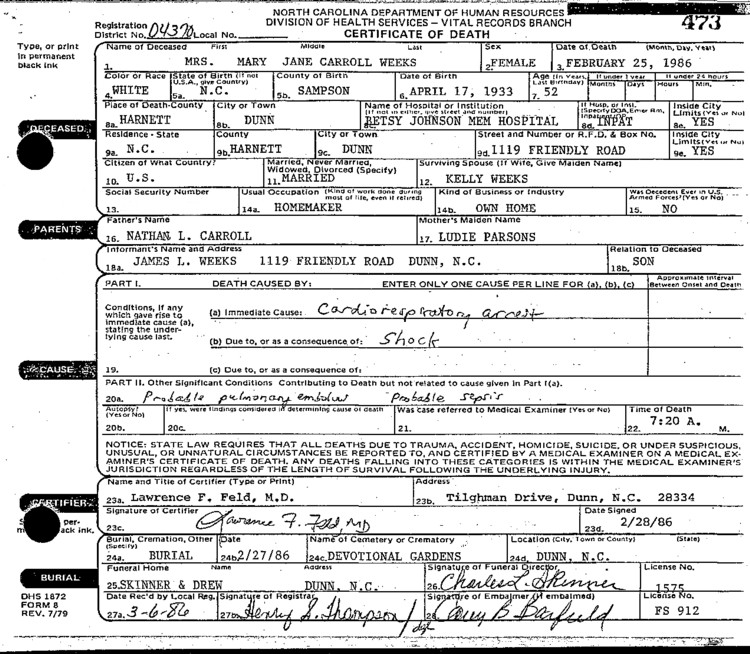 NORTH CAROLINA DEPARTMENT OF HUMAN RESOURCES
DIVISION OF HEALTH SERVICES – VITAL RECORDS BRANCH
CERTIFICATE OF DEATH
473
Registration District No. 04370 Local No.
Type, or print in permanent black ink
Name of Deceased First Middle Last Sex Date of Death (Month, Day, Year)
1. MRS. MARY JANE CARROLL WEEKS 2. FEMALE 3. FEBRUARY 25, 1986
Color or Race State of Birth (If not U.S.A., give Country) County of Birth Date of Birth Age (In Years, Last Birthday) If under 1 year Months Days If under 24 hours Hours Min.
4. WHITE 5a. N.C. 5b. SAMPSON 6. APRIL 17, 1933 7. 52
DECEASED
Place of Death-County City or Town Name of Hospital or Institution (If not in either, give street and number) If Hosp. or Inst. (Specify DOA, Emer Rm, Inpatient) Inside City Limits (Yes or No)
8a. HARNETT 8b. DUNN 8c. BETSY JOHNSON MEM HOSPITAL 8d. INPAT 8e. YES
Residence - State County City or Town Street and Number or R.F.D. & Box No. Inside City Limits (Yes or No)
9a. N.C. 9b. HARNETT 9c. DUNN 9d. 1119 FRIENDLY ROAD 9e. YES
Citizen of What Country? Married, Never Married, Widowed, Divorced (Specify) Surviving Spouse (If Wife, Give Maiden Name)
10. U.S. 11. MARRIED 12. KELLY WEEKS
Social Security Number Usual Occupation (Kind of work done during most of life, even if retired) Kind of Business or Industry Was Decedent Ever in U.S. Armed Forces? (Yes or No)
13. 14a. HOMEMAKER 14b. OWN HOME 15. NO
PARENTS
Father's Name Mother's Maiden Name
16. NATHAN L. CARROLL 17. LUDIE PARSONS
Informant's Name and Address Relation to Deceased
18a. JAMES L. WEEKS 1119 FRIENDLY ROAD DUNN, N.C. 18b. SON
PART I. DEATH CAUSED BY: ENTER ONLY ONE CAUSE PER LINE FOR (a), (b), (c) Approximate Interval Between Onset and Death
Conditions, if any which gave rise to immediate cause (a), stating the underlying cause last.
(a) Immediate Cause: Cardiorespiratory arrest
(b) Due to, or as a consequence of: Shock
CAUSE
19. (c) Due to, or as a consequence of:
PART II. Other Significant Conditions Contributing to Death but not related to cause given in Part I(a).
20a. Probable pulmonary embolus Probable sepsis
Autopsy? (Yes or No) If yes, were findings considered in determining cause of death Was case referred to Medical Examiner (Yes or No) Time of Death
20b. 20c. 21. 22. 7:20 A. M.
NOTICE: STATE LAW REQUIRES THAT ALL DEATHS DUE TO TRAUMA, ACCIDENT, HOMICIDE, SUICIDE, OR UNDER SUSPICIOUS,
UNUSUAL, OR UNNATURAL CIRCUMSTANCES BE REPORTED TO, AND CERTIFIED BY A MEDICAL EXAMINER ON A MEDICAL EX-
AMINER'S CERTIFICATE OF DEATH. ANY DEATHS FALLING INTO THESE CATEGORIES IS WITHIN THE MEDICAL EXAMINER'S
JURISDICTION REGARDLESS OF THE LENGTH OF SURVIVAL FOLLOWING THE UNDERLYING INJURY.
CERTIFIER
Name and Title of Certifier (Type or Print) Address
23a. Lawrence F. Feld, M.D. 23b. Tilghman Drive, Dunn, N.C. 28334
Signature of Certifier Date Signed
23c. Lawrence F. Feld, MD 23d. 2/28/86
per-
ack ink.
Burial, Cremation, Other (Specify) Date Name of Cemetery or Crematory Location (City, Town or County) (State)
24a. BURIAL 24b. 2/27/86 24c. DEVOTIONAL GARDENS 24d. DUNN, N.C.
BURIAL
Funeral Home Name Address Signature of Funeral Director License No.
25. SKINNER & DREW DUNN, N.C. 26. Charles L. Skinner 1575
DHS 1872
FORM 8
REV. 7/79
Date Rec'd by Local Reg. Signature of Registrar Signature of Embalmer (If embalmed) License No.
27a. 3-6-86 27b. Henry S. Thompson/ 28. Barfield FS 912